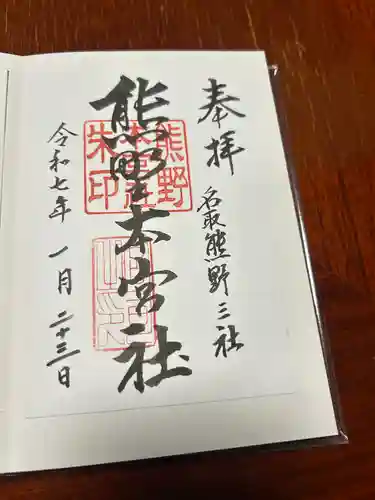 奉拝
名取熊野三社
熊野本宮社
熊野
本宮社
朱印
令和七年 一月 二十三日